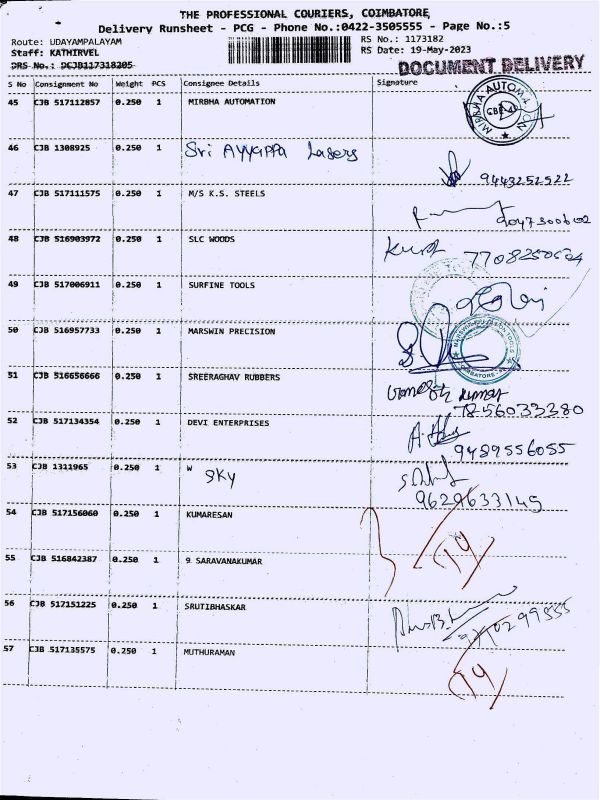 THE PROFESSIONAL COURIERS, COIMBATORE
Delivery Runsheet - PCG - Phone No.:0422-3505555 - Page No.:5
Route: UDAYAMPALAYAM RS No.: 1173182
Staff: KATHIRVEL RS Date: 19-May-2023
DRS No.: DCJB117318205 DOCUMENT DELIVERY
S No Consignment No Weight PCS Consignee Details Signature
45 CJB 517112857 0.250 1 MIRBHA AUTOMATION
MIRBHA AUTOMATION
46 CJB 1308925 0.250 1 Sri AYYAPPA Lasers
9443252522
47 CJB 517111575 0.250 1 M/S K.S. STEELS
48 CJB 516903972 0.250 1 SLC WOODS
49 CJB 517006911 0.250 1 SURFINE TOOLS
50 CJB 516957733 0.250 1 MARSWIN PRECISION
51 CJB 516656666 0.250 1 SREERAGHAV RUBBERS
7856033380
52 CJB 517134354 0.250 1 DEVI ENTERPRISES
9489556055
53 CJB 1311965 0.250 1 W SKY
9629633145
54 CJB 517156060 0.250 1 KUMARESAN
55 CJB 516842387 0.250 1 9 SARAVANAKUMAR
56 CJB 517151225 0.250 1 SRUTIBHASKAR
57 CJB 517135575 0.250 1 MUTHURAMAN